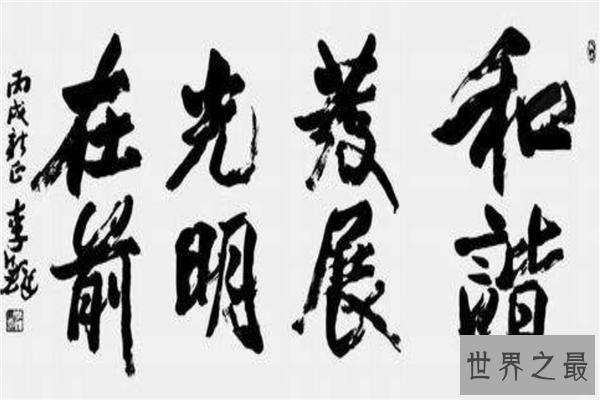 和諧
發展
光明
在前
丙戌新正 李鐸
世界之最